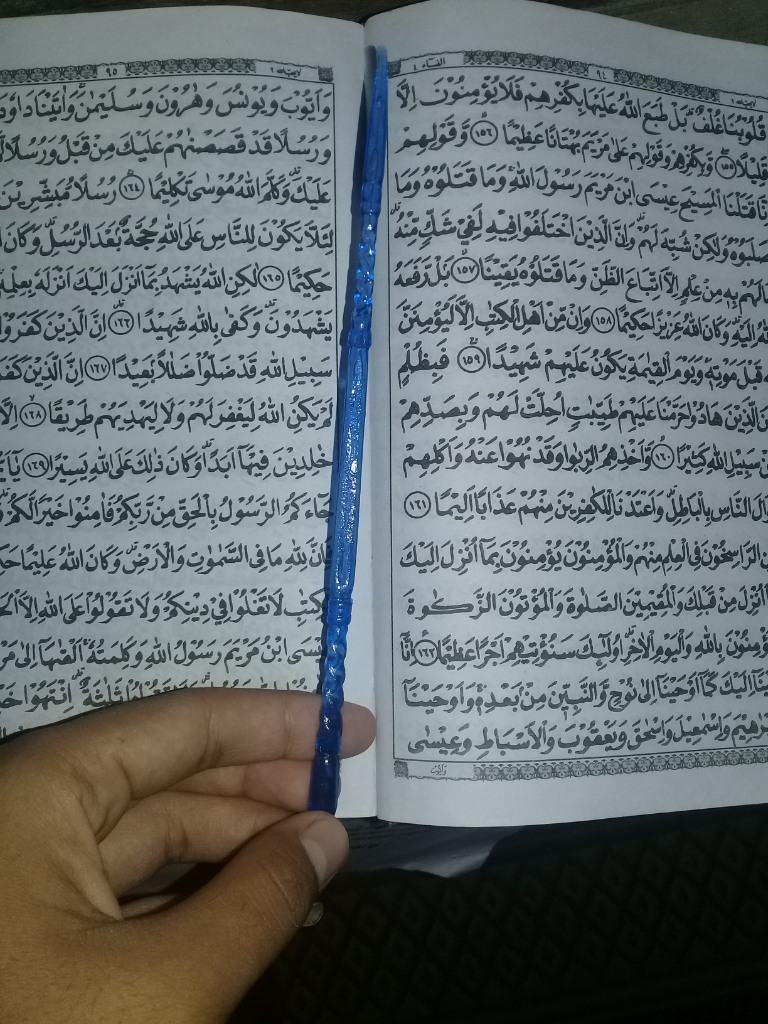 النساء ٤
٩٤
لايحب الله ٦
قُلُوْبُنَا غُلْفٌ ؕ بَلْ طَبَعَ اللّٰهُ عَلَيْهَا بِكُفْرِهِمْ فَلَا يُؤْمِنُوْنَ اِلَّا
قَلِيْلًا ﴿۱۵۵﴾ وَّبِكُفْرِهِمْ وَقَوْلِهِمْ عَلٰى مَرْيَمَ بُهْتَانًا عَظِيْمًا ﴿۱۵۶﴾ وَّقَوْلِهِمْ
نَّا قَتَلْنَا الْمَسِيْحَ عِيْسَى ابْنَ مَرْيَمَ رَسُوْلَ اللّٰهِ ۚ وَمَا قَتَلُوْهُ وَمَا
صَلَبُوْهُ وَلٰكِنْ شُبِّهَ لَهُمْ ؕ وَاِنَّ الَّذِيْنَ اخْتَلَفُوْا فِيْهِ لَفِيْ شَكٍّ مِّنْهُ ؕ
مَا لَهُمْ بِهٖ مِنْ عِلْمٍ اِلَّا اتِّبَاعَ الظَّنِّ ۚ وَمَا قَتَلُوْهُ يَقِيْنًا ﴿۱۵۷﴾ بَلْ رَّفَعَهُ
اللّٰهُ اِلَيْهِ ؕ وَكَانَ اللّٰهُ عَزِيْزًا حَكِيْمًا ﴿۱۵۸﴾ وَاِنْ مِّنْ اَهْلِ الْكِتٰبِ اِلَّا لَيُؤْمِنَنَّ
بِهٖ قَبْلَ مَوْتِهٖ ۚ وَيَوْمَ الْقِيٰمَةِ يَكُوْنُ عَلَيْهِمْ شَهِيْدًا ﴿۱۵۹﴾ فَبِظُلْمٍ
مِّنَ الَّذِيْنَ هَادُوْا حَرَّمْنَا عَلَيْهِمْ طَيِّبٰتٍ اُحِلَّتْ لَهُمْ وَبِصَدِّهِمْ
عَنْ سَبِيْلِ اللّٰهِ كَثِيْرًا ﴿۱۶۰﴾ وَّاَخْذِهِمُ الرِّبٰوا وَقَدْ نُهُوْا عَنْهُ وَاَكْلِهِمْ
وَالَ النَّاسِ بِالْبَاطِلِ ؕ وَاَعْتَدْنَا لِلْكٰفِرِيْنَ مِنْهُمْ عَذَابًا اَلِيْمًا ﴿۱۶۱﴾
نِ الرّٰسِخُوْنَ فِي الْعِلْمِ مِنْهُمْ وَالْمُؤْمِنُوْنَ يُؤْمِنُوْنَ بِمَآ اُنْزِلَ اِلَيْكَ
اُنْزِلَ مِنْ قَبْلِكَ وَالْمُقِيْمِيْنَ الصَّلٰوةَ وَالْمُؤْتُوْنَ الزَّكٰوةَ
ؤْمِنُوْنَ بِاللّٰهِ وَالْيَوْمِ الْاٰخِرِ ؕ اُولٰٓئِكَ سَنُؤْتِيْهِمْ اَجْرًا عَظِيْمًا ﴿۱۶۲﴾ اِنَّآ
يْنَآ اِلَيْكَ كَمَآ اَوْحَيْنَآ اِلٰى نُوْحٍ وَّالنَّبِيّٖنَ مِنْۢ بَعْدِهٖ ۚ وَاَوْحَيْنَآ
بْرٰهِيْمَ وَاِسْمٰعِيْلَ وَاِسْحٰقَ وَيَعْقُوْبَ وَالْاَسْبَاطِ وَعِيْسٰى
وَاَيُّوْبَ
لايحب الله ٦
٩٥
وَاَيُّوْبَ وَيُوْنُسَ وَهٰرُوْنَ وَسُلَيْمٰنَ ۚ وَاٰتَيْنَا دَاوٗدَ
وَرُسُلًا قَدْ قَصَصْنٰهُمْ عَلَيْكَ مِنْ قَبْلُ وَرُسُلًا لَّ
عَلَيْكَ ؕ وَكَلَّمَ اللّٰهُ مُوْسٰى تَكْلِيْمًا ﴿۱۶۴﴾ رُسُلًا مُّبَشِّرِيْنَ
لِئَلَّا يَكُوْنَ لِلنَّاسِ عَلَى اللّٰهِ حُجَّةٌۢ بَعْدَ الرُّسُلِ ؕ وَكَانَ ا
حَكِيْمًا ﴿۱۶۵﴾ لٰكِنِ اللّٰهُ يَشْهَدُ بِمَآ اَنْزَلَ اِلَيْكَ اَنْزَلَهٗ بِعِلْمِهٖ
يَشْهَدُوْنَ ؕ وَكَفٰى بِاللّٰهِ شَهِيْدًا ﴿۱۶۶﴾ اِنَّ الَّذِيْنَ كَفَرُوْا
سَبِيْلِ اللّٰهِ قَدْ ضَلُّوْا ضَلٰلًۢا بَعِيْدًا ﴿۱۶۷﴾ اِنَّ الَّذِيْنَ كَفَ
لَمْ يَكُنِ اللّٰهُ لِيَغْفِرَ لَهُمْ وَلَا لِيَهْدِيَهُمْ طَرِيْقًا ﴿۱۶۸﴾ اِلَّا
خٰلِدِيْنَ فِيْهَآ اَبَدًا ؕ وَكَانَ ذٰلِكَ عَلَى اللّٰهِ يَسِيْرًا ﴿۱۶۹﴾ يٰٓاَيُّ
جَآءَكُمُ الرَّسُوْلُ بِالْحَقِّ مِنْ رَّبِّكُمْ فَاٰمِنُوْا خَيْرًا لَّكُمْ ؕ وَ
فَاِنَّ لِلّٰهِ مَا فِي السَّمٰوٰتِ وَالْاَرْضِ ؕ وَكَانَ اللّٰهُ عَلِيْمًا حَكِ
لْكِتٰبِ لَا تَغْلُوْا فِيْ دِيْنِكُمْ وَلَا تَقُوْلُوْا عَلَى اللّٰهِ اِلَّا الْحَ
عِيْسَى ابْنُ مَرْيَمَ رَسُوْلُ اللّٰهِ وَكَلِمَتُهٗ ۚ اَلْقٰىهَآ اِلٰى مَرْ
ثَلٰثَةٌ ؕ اِنْتَهُوْا خَيْ